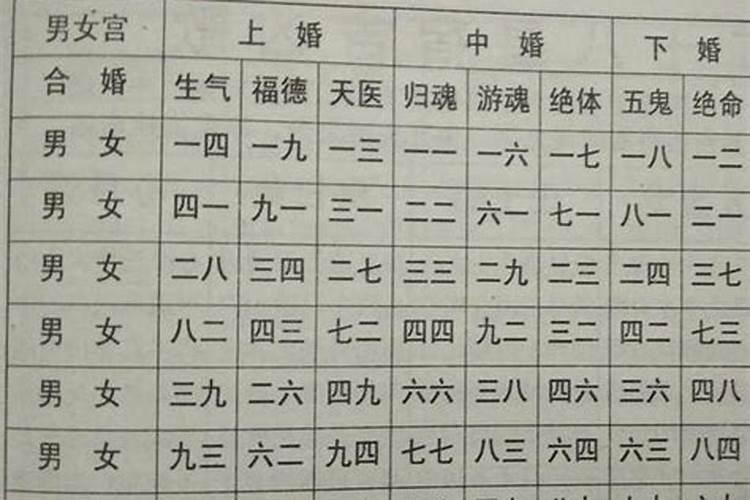 男女宫 上 婚 中 婚 下 婚
合 婚 生气 福德 天医 归魂 游魂 绝体 五鬼 绝命
男 女 一四 一九 一三 一一 一六 一七 一八 一二
男 女 四一 九一 三一 二二 六一 七一 八一 二一
男 女 二八 三四 二七 三三 二九 二三 二四 三七
男 女 八二 四三 七二 四四 九二 三二 四二 七三
男 女 三九 二六 四九 六六 三八 四六 三六 四八
男 女 九三 六二 九四 七七 八三 六四 六三 八四